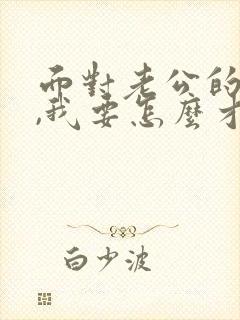 而對老公的
,我要怎麼才
白少波